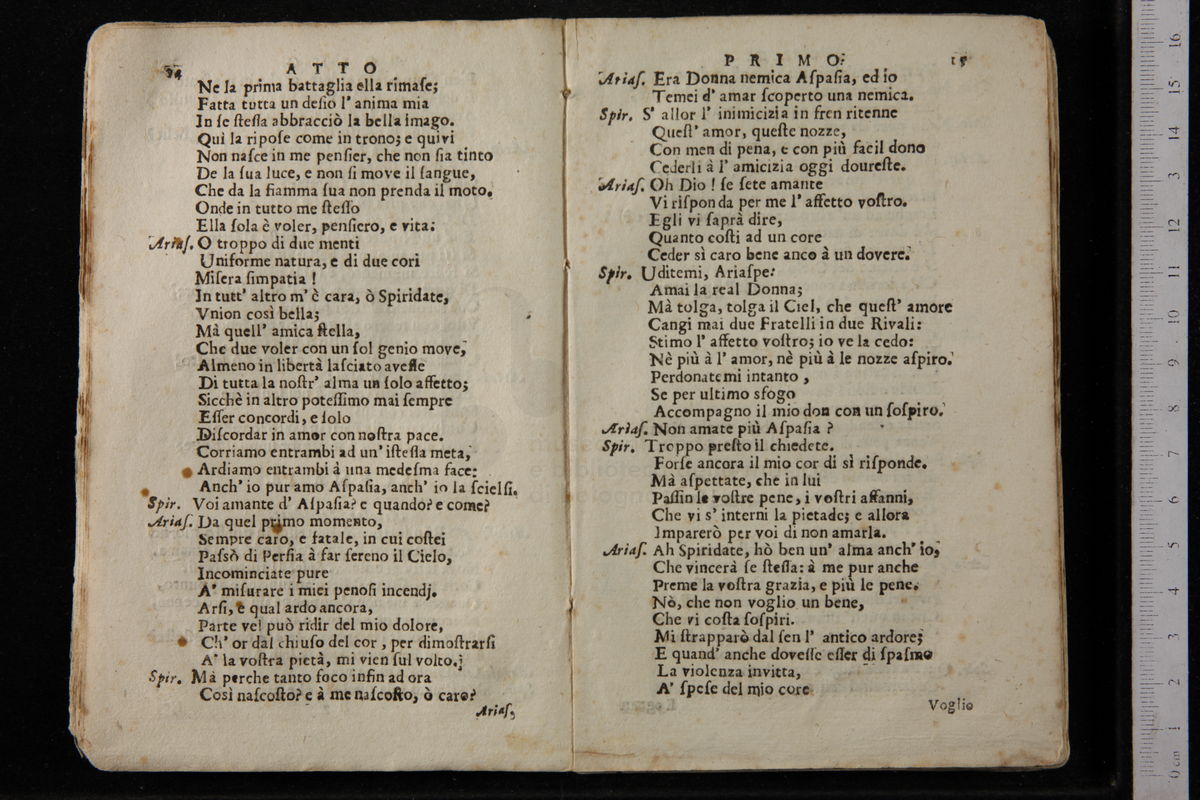 34 ATTO
Ne la prima battaglia ella rimaſe;
Fatta tutta un deſio l' anima mia
In ſe ſteſſa abbracciò la bella imago.
Quì la ripoſe come in trono; e quivi
Non naſce in me penſier, che non ſia tinto
De la ſua luce, e non ſi move il ſangue,
Che da la fiamma ſua non prenda il moto.
Onde in tutto me ſteſſo
Ella ſola è voler, penſiero, e vita:
Ariaſ. O troppo di due menti
Uniforme natura, e di due cori
Miſera ſimpatia !
In tutt' altro m' è cara, ò Spiridate,
Vnion così bella;
Mà quell' amica ſtella,
Che due voler con un ſol genio move,
Almeno in libertà laſciato aveſſe
Di tutta la noſtr' alma un ſolo affetto;
Sicchè in altro poteſſimo mai ſempre
Eſſer concordi, e ſolo
Diſcordar in amor con noſtra pace.
Corriamo entrambi ad un' iſteſſa meta,
Ardiamo entrambi à una medeſma face:
Anch' io pur amo Aſpaſia, anch' io la ſcielſi.
Spir. Voi amante d' Aſpaſia? e quando? e come?
Ariaſ. Da quel primo momento,
Sempre caro, e fatale, in cui coſtei
Paſsò di Perſia à far ſereno il Cielo,
Incominciate pure
A' miſurare i miei penoſi incendj.
Arſi, e qual ardo ancora,
Parte vel può ridir del mio dolore,
Ch' or dal chiuſo del cor , per dimoſtrarſi
A' la voſtra pietà, mi vien ſul volto.;
Spir. Mà perche tanto foco infin ad ora
Così naſcoſto? e à me naſcoſto, ò caro?
Ariaſ,
PRIMO. 15
Ariaſ. Era Donna nemica Aſpaſia, ed io
Temei d' amar ſcoperto una nemica.
Spir. S' allor l' inimicizia in fren ritenne
Queſt' amor, queſte nozze,
Con men di pena, e con più facil dono
Cederli à l' amicizia oggi doureſte.
Ariaſ. Oh Dio ! ſe ſete amante
Vi riſponda per me l' affetto voſtro.
Egli vi ſaprà dire,
Quanto coſti ad un core
Ceder sì caro bene anco à un dovere.
Spir. Uditemi, Ariaſpe:
Amai la real Donna;
Mà tolga, tolga il Ciel, che queſt' amore
Cangi mai due Fratelli in due Rivali:
Stimo l' affetto voſtro; io ve la cedo:
Nè più à l' amor, nè più à le nozze aſpiro.
Perdonatemi intanto ,
Se per ultimo sfogo
Accompagno il mio don con un ſoſpiro.
Ariaſ. Non amate più Aſpaſia ?
Spir. Troppo preſto il chiedete.
Forſe ancora il mio cor di sì riſponde.
Mà aſpettate, che in lui
Paſſin le voſtre pene, i voſtri affanni,
Che vi s' interni la pietade; e allora
Imparerò per voi di non amarla.
Ariaſ. Ah Spiridate, hò ben un' alma anch' io,
Che vincerà ſe ſteſſa: à me pur anche
Preme la voſtra grazia, e più le pene.
Nò, che non voglio un bene,
Che vi coſta ſoſpiri.
Mi ſtrapparò dal ſen l' antico ardore;
E quand' anche doveſſe eſſer di ſpaſmo
La violenza invitta,
A' ſpeſe del mio core
Voglio